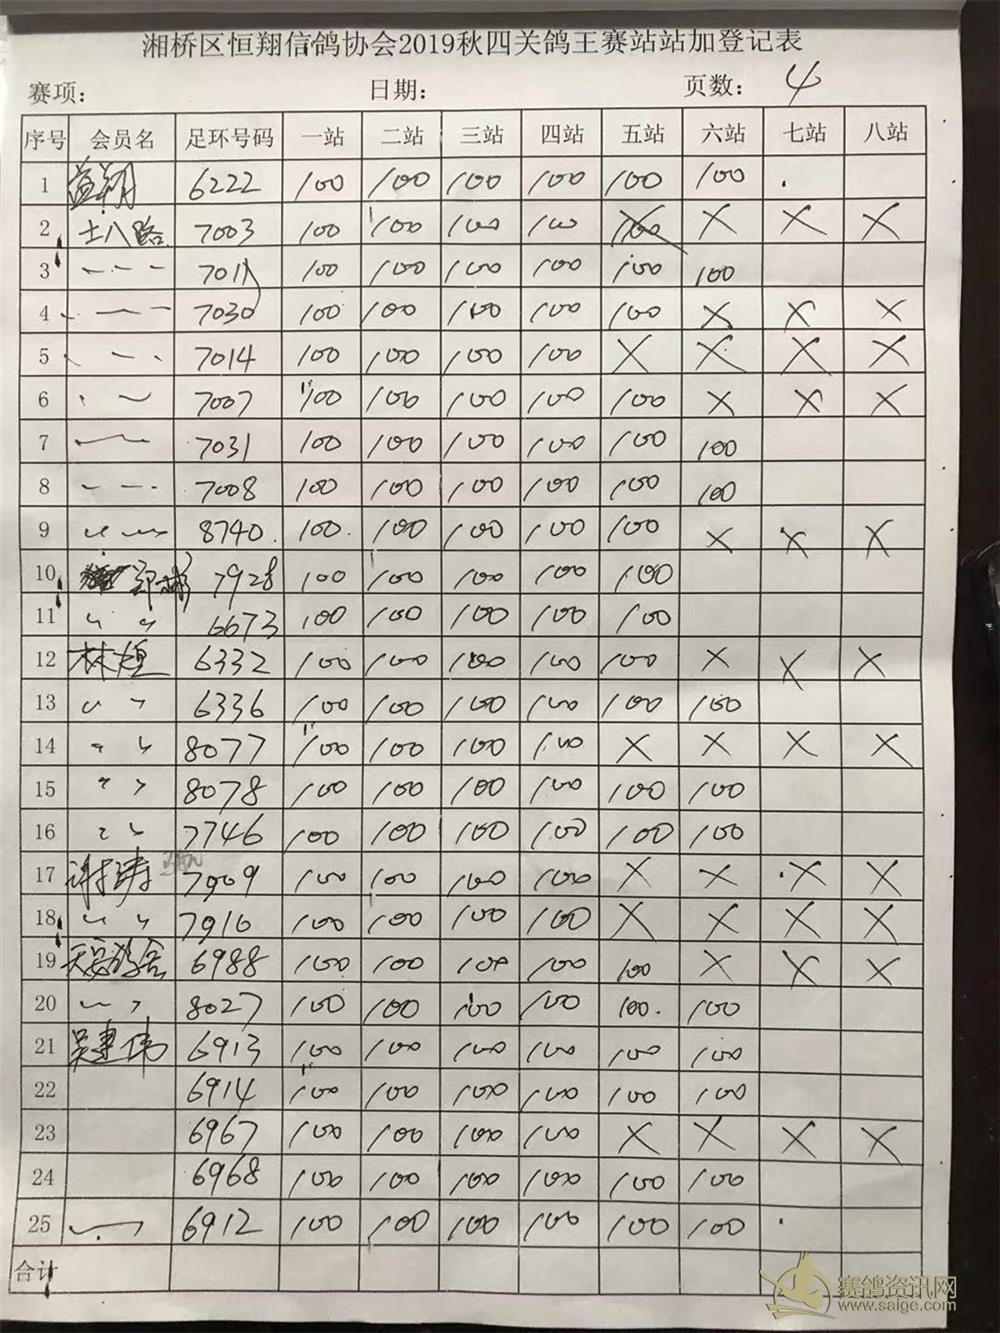 湘桥区恒翔信鸽协会2019秋四关鸽王赛站站加登记表
赛项: 日期: 页数: 4
序号 会员名 足环号码 一站 二站 三站 四站 五站 六站 七站 八站
1 益翔 6222 100 100 100 100 100 100
2 士八路 7003 100 100 100 100 100 X X X
3 7011 100 100 100 100 100 100
4 7030 100 100 100 100 100 X X X
5 7014 100 100 100 100 X X X X
6 7007 100 100 100 100 100 X X X
7 7031 100 100 100 100 100 100
8 7008 100 100 100 100 100 100
9 8740 100 100 100 100 100 X X X
10 7928 100 100 100 100 100
11 〃 〃 6673 100 100 100 100 100
12 林煌 6332 100 100 100 100 100 X X X
13 〃 〃 6336 100 100 100 100 100 100
14 〃 〃 8077 100 100 100 100 X X X X
15 〃 〃 8078 100 100 100 100 100 100
16 〃 〃 7746 100 100 100 100 100 100
17 谢涛 7909 100 100 100 100 X X X X
18 〃 〃 7910 100 100 100 100 X X X X
19 天安鸽舍 6988 100 100 100 100 100 X X X
20 〃 〃 8027 100 100 100 100 100 100
21 吴建伟 6913 100 100 100 100 100 100
22 6914 100 100 100 100 100 100
23 6967 100 100 100 100 X X X X
24 6968 100 100 100 100 100 100
25 6912 100 100 100 100 100 100
合计
赛鸽资讯网
www.saige.com